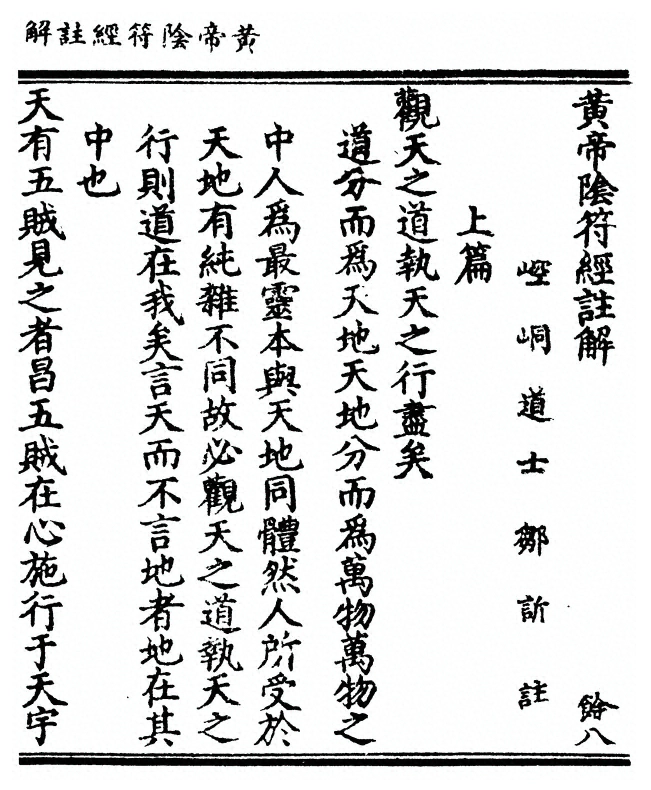 黃帝陰符經註解
黃帝陰符經註解 餘八
崆峒道士鄒訢註
上篇
觀天之道執天之行盡矣
道分而爲天地天地分而爲萬物萬物之
中人爲最靈本與天地同體然人所受於
天地有純雜不同故必觀天之道執天之
行則道在我矣言天而不言地者地在其
中也
天有五賊見之者昌五賊在心施行于天宇